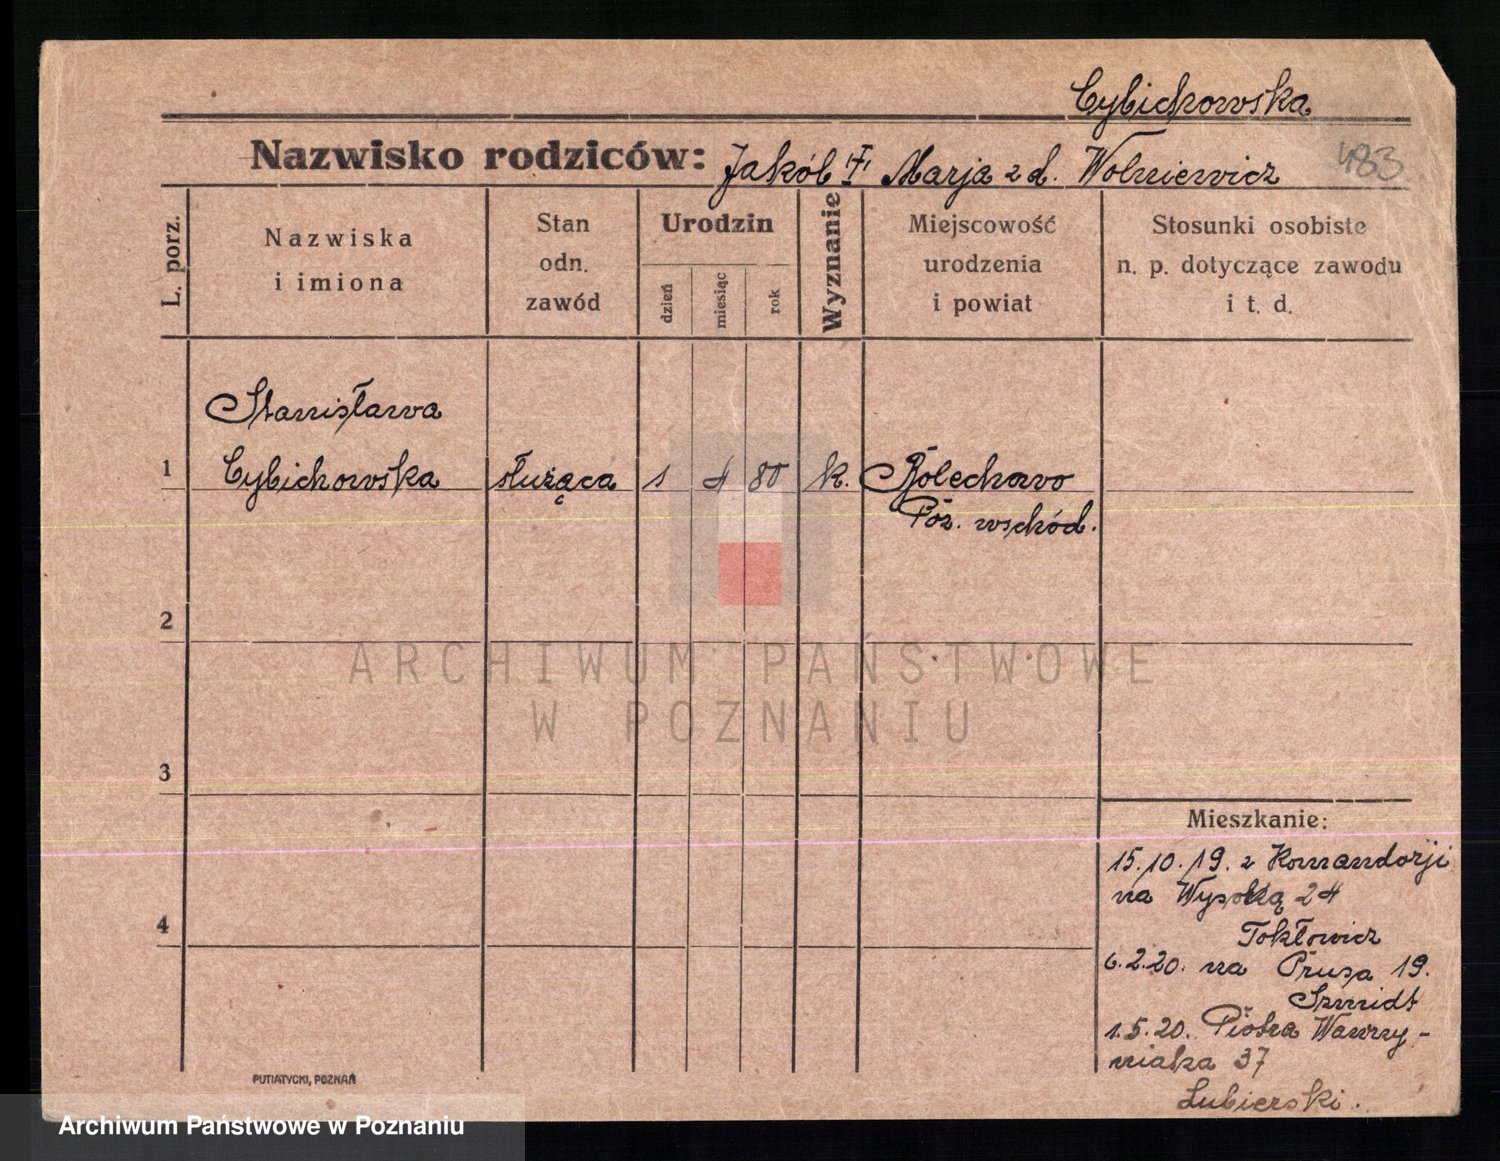 Cybichowska
Nazwisko rodziców: Jakób i Marja z d. Wolniewicz
483
L. porz.
Nazwiska i imiona
Stan odn. zawód
Urodzin
dzień
miesiąc
rok
Wyznanie
Miejscowość urodzenia i powiat
Stosunki osobiste n. p. dotyczące zawodu i t. d.
Stanisława
1 Cybichowska służąca 1 4 80 k. Bolechowo
Poz. wschód.
2
ARCHIWUM PAŃSTWOWE
W POZNANIU
3
Mieszkanie:
15.10.19. z Komandorji
na Wysoką 24
4
Tokłowicz
6.2.20. na Prusa 19.
Szmidt
1.5.20. Piotra Wawrzy-
niaka 37
Lubierski.
PUTIATYCKI, POZNAŃ
Archiwum Państwowe w Poznaniu